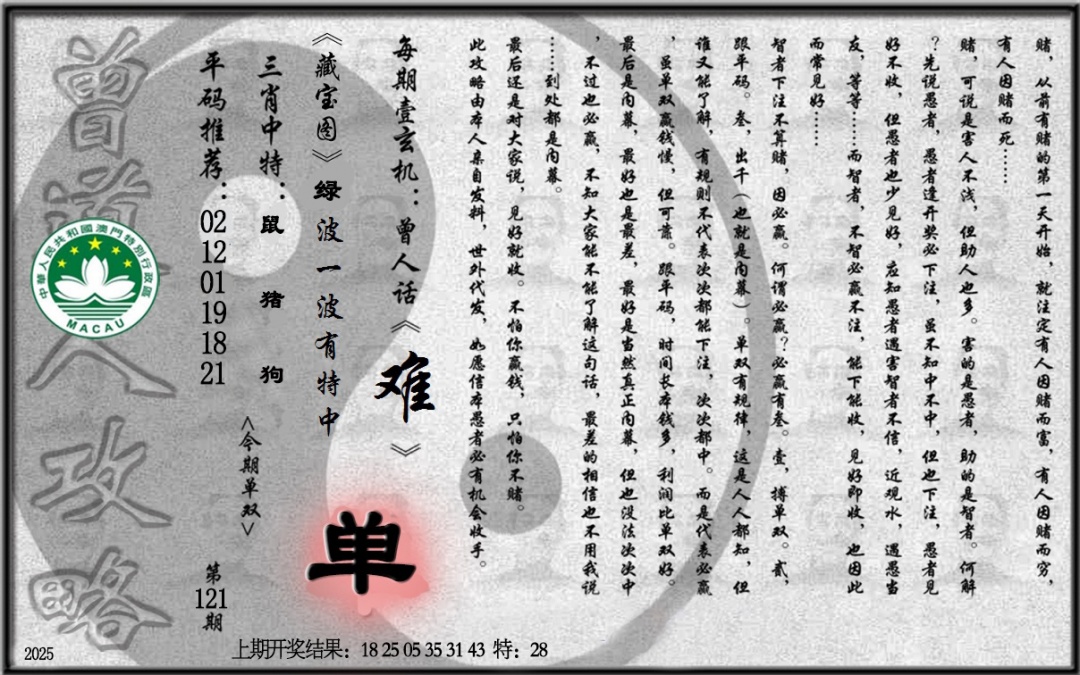 赌，从前有赌的第一天开始，就注定有人因赌而富，有人因赌而穷，
有人因赌而死……
赌，可说是害人不浅，但助人也多。害的是愚者，助的是智者。何解
？先说愚者，愚者逢开奖必下注，虽不知中不中，但也下注，愚者见
好不收，但愚者也少见好，应知愚者遇害智者不信，近观水，遇愚当
友，等等……而智者，不智必赢不注，能下能收，见好即收，也因此
而常见好……
智者下注不算赌，因必赢。何谓必赢？必赢有叁。壹，搏单双。贰，
跟平码。叁，出千（也就是内幕）。单双有规律，这是人人都知，但
谁又能了解，有规则不代表次次都能下注，次次都中。而是代表必赢
，虽单双赢钱慢，但可靠。跟平码，时间长本钱多，利润比单双好。
最后是内幕，最好也是最差，最好是当然真正内幕，但也没法次次中
，不过也必赢，不知大家能不能了解这句话，最差的相信也不用我说
……到处都是内幕。
最后还是对大家说，见好就收。不怕你赢钱，只怕你不赌。
此攻略由本人亲自发料，世外代发，如愿信本愚者必有机会收手。
每期壹玄机：曾人话《难》
《藏宝图》绿波一波有特中
三肖中特：鼠 猪 狗
<今期单双>
单
平码推荐：02 12 01 19 18 21
第121期
曾道人攻略
中華人民共和國澳門特別行政區
MACAU
2025
上期开奖结果：18 25 05 35 31 43 特：28